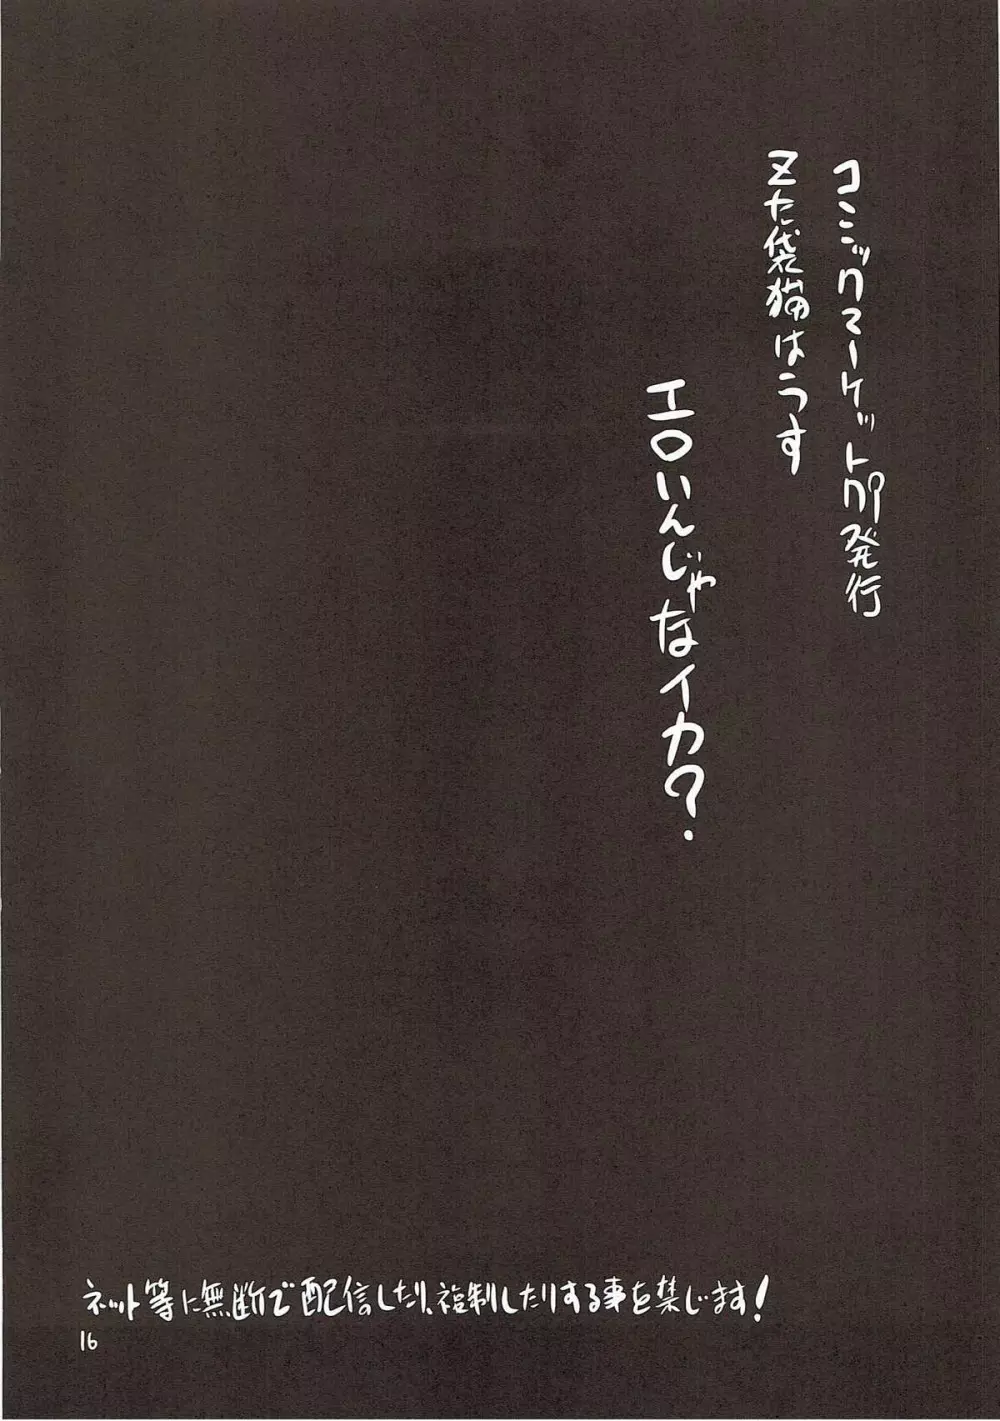 コミックマーケット79発行
Zた袋猫はうす
エロいんじゃなイカ?
ネット等に無断で配信したり、複制したりする事を禁じます!
16